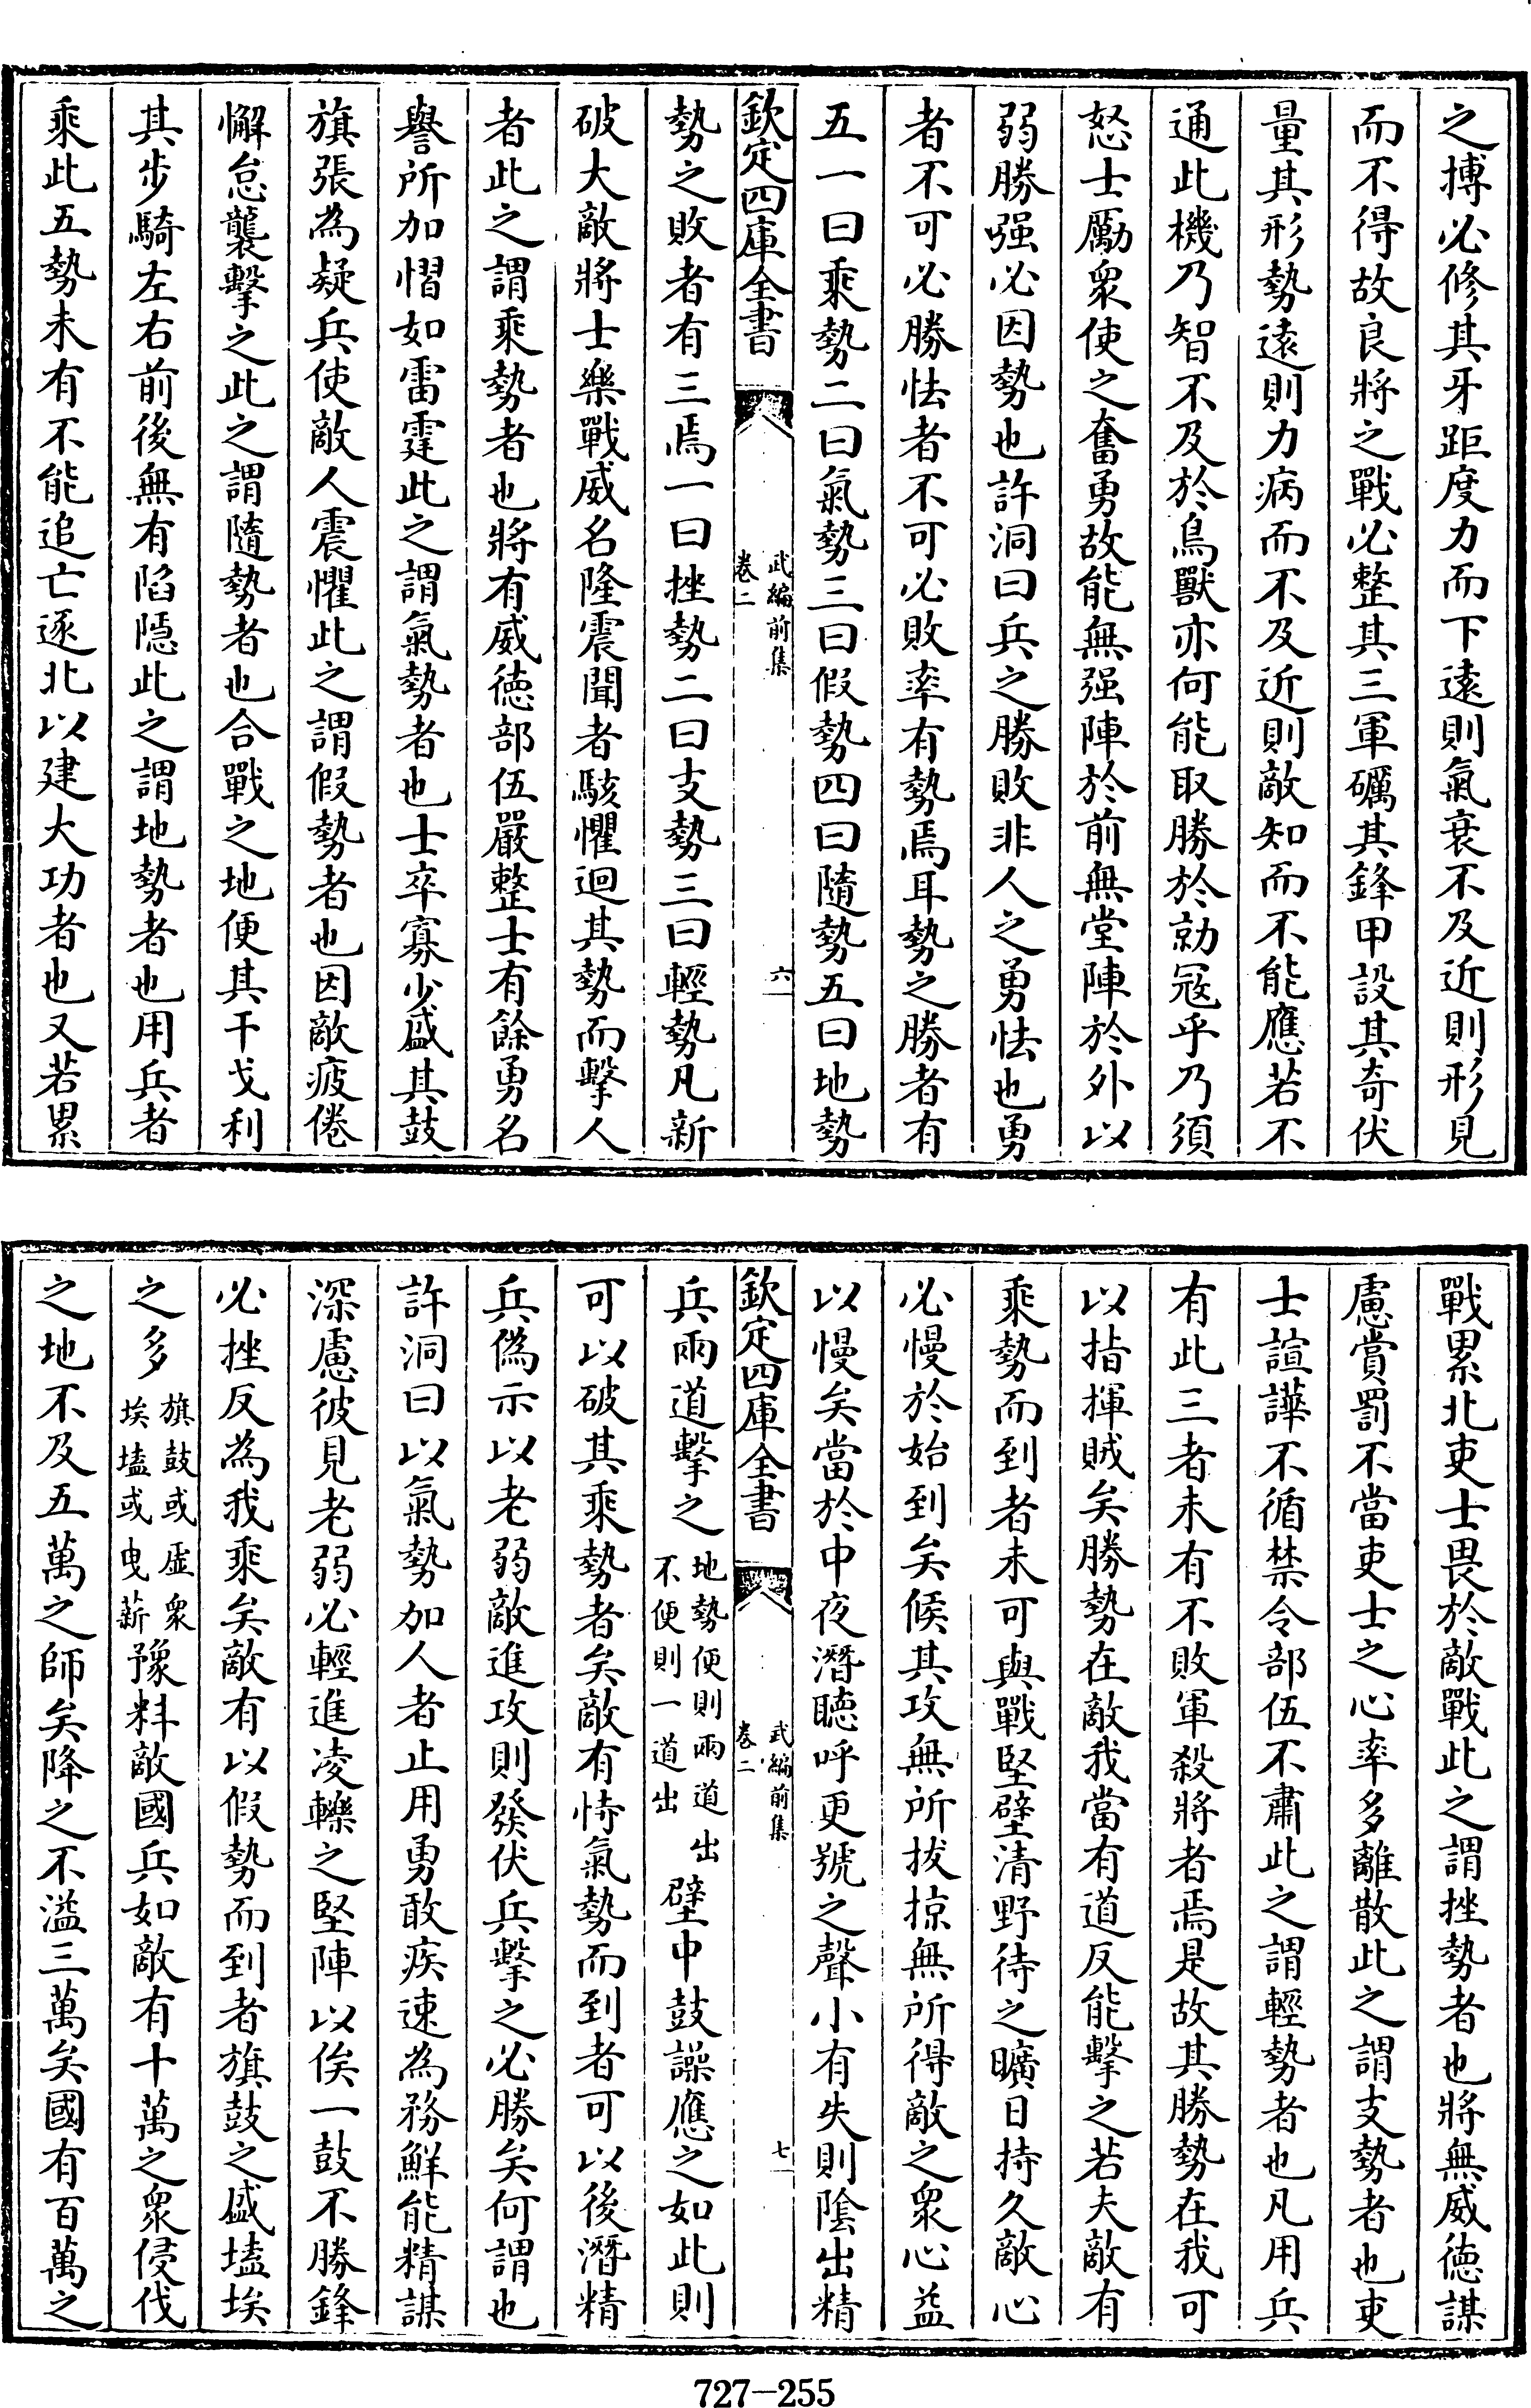 之搏必修其牙距度力而下遠則氣衰不及近則形見
而不得故良將之戰必整其三軍礪其鋒甲設其奇伏
量其形勢遠則力病而不及近則敵知而不能應若不
通此機乃智不及於鳥獸亦何能取勝於勍冦乎乃須
怒士厲衆使之奮勇故能無强陣於前無堂陣於外以
弱勝强必因勢也許洞曰兵之勝敗非人之勇怯也勇
者不可必勝怯者不可必敗率有勢焉耳勢之勝者有
五一曰乘勢二曰氣勢三曰假勢四曰隨勢五曰地勢
欽定四庫全書
武編前集
卷二
六
勢之敗者有三焉一曰挫勢二曰支勢三曰輕勢凡新
破大敵將士樂戰威名隆震聞者駭懼迴其勢而擊人
者此之謂乘勢者也將有威徳部伍嚴整士有餘勇名
譽所加慴如雷霆此之謂氣勢者也士卒寡少盛其鼓
旗張為疑兵使敵人震懼此之謂假勢者也因敵疲倦
懈怠襲擊之此之謂隨勢者也合戰之地便其干戈利
其步騎左右前後無有陷隠此之謂地勢者也用兵者
乘此五勢未有不能追亡逐北以建大功者也又若累
戰累北吏士畏於敵戰此之謂挫勢者也將無威徳謀
慮賞罰不當吏士之心率多離散此之謂支勢者也吏
士諠譁不循禁令部伍不肅此之謂輕勢者也凡用兵
有此三者未有不敗軍殺將者焉是故其勝勢在我可
以指揮賊矣勝勢在敵我當有道反能擊之若夫敵有
乘勢而到者未可與戰堅壁清野待之曠日持久敵心
必慢於始到矣候其攻無所拔掠無所得敵之衆心益
以慢矣當於中夜潛聽呼更號之聲小有失則隂出精
欽定四庫全書
武編前集
卷二
七
兵兩道擊之地勢便則兩道出不便則一道出壁中鼓譟應之如此則
可以破其乘勢者矣敵有恃氣勢而到者可以後潛精
兵偽示以老弱敵進攻則發伏兵擊之必勝矣何謂也
許洞曰以氣勢加人者止用勇敢疾速為務鮮能精謀
深慮彼見老弱必輕進凌轢之堅陣以俟一鼓不勝鋒
必挫反為我乘矣敵有以假勢而到者旗鼓之盛壒埃
之多旗鼓或虛衆埃壒或曳薪豫料敵國兵如敵有十萬之衆侵伐
之地不及五萬之師矣降之不溢三萬矣國有百萬之
727-255